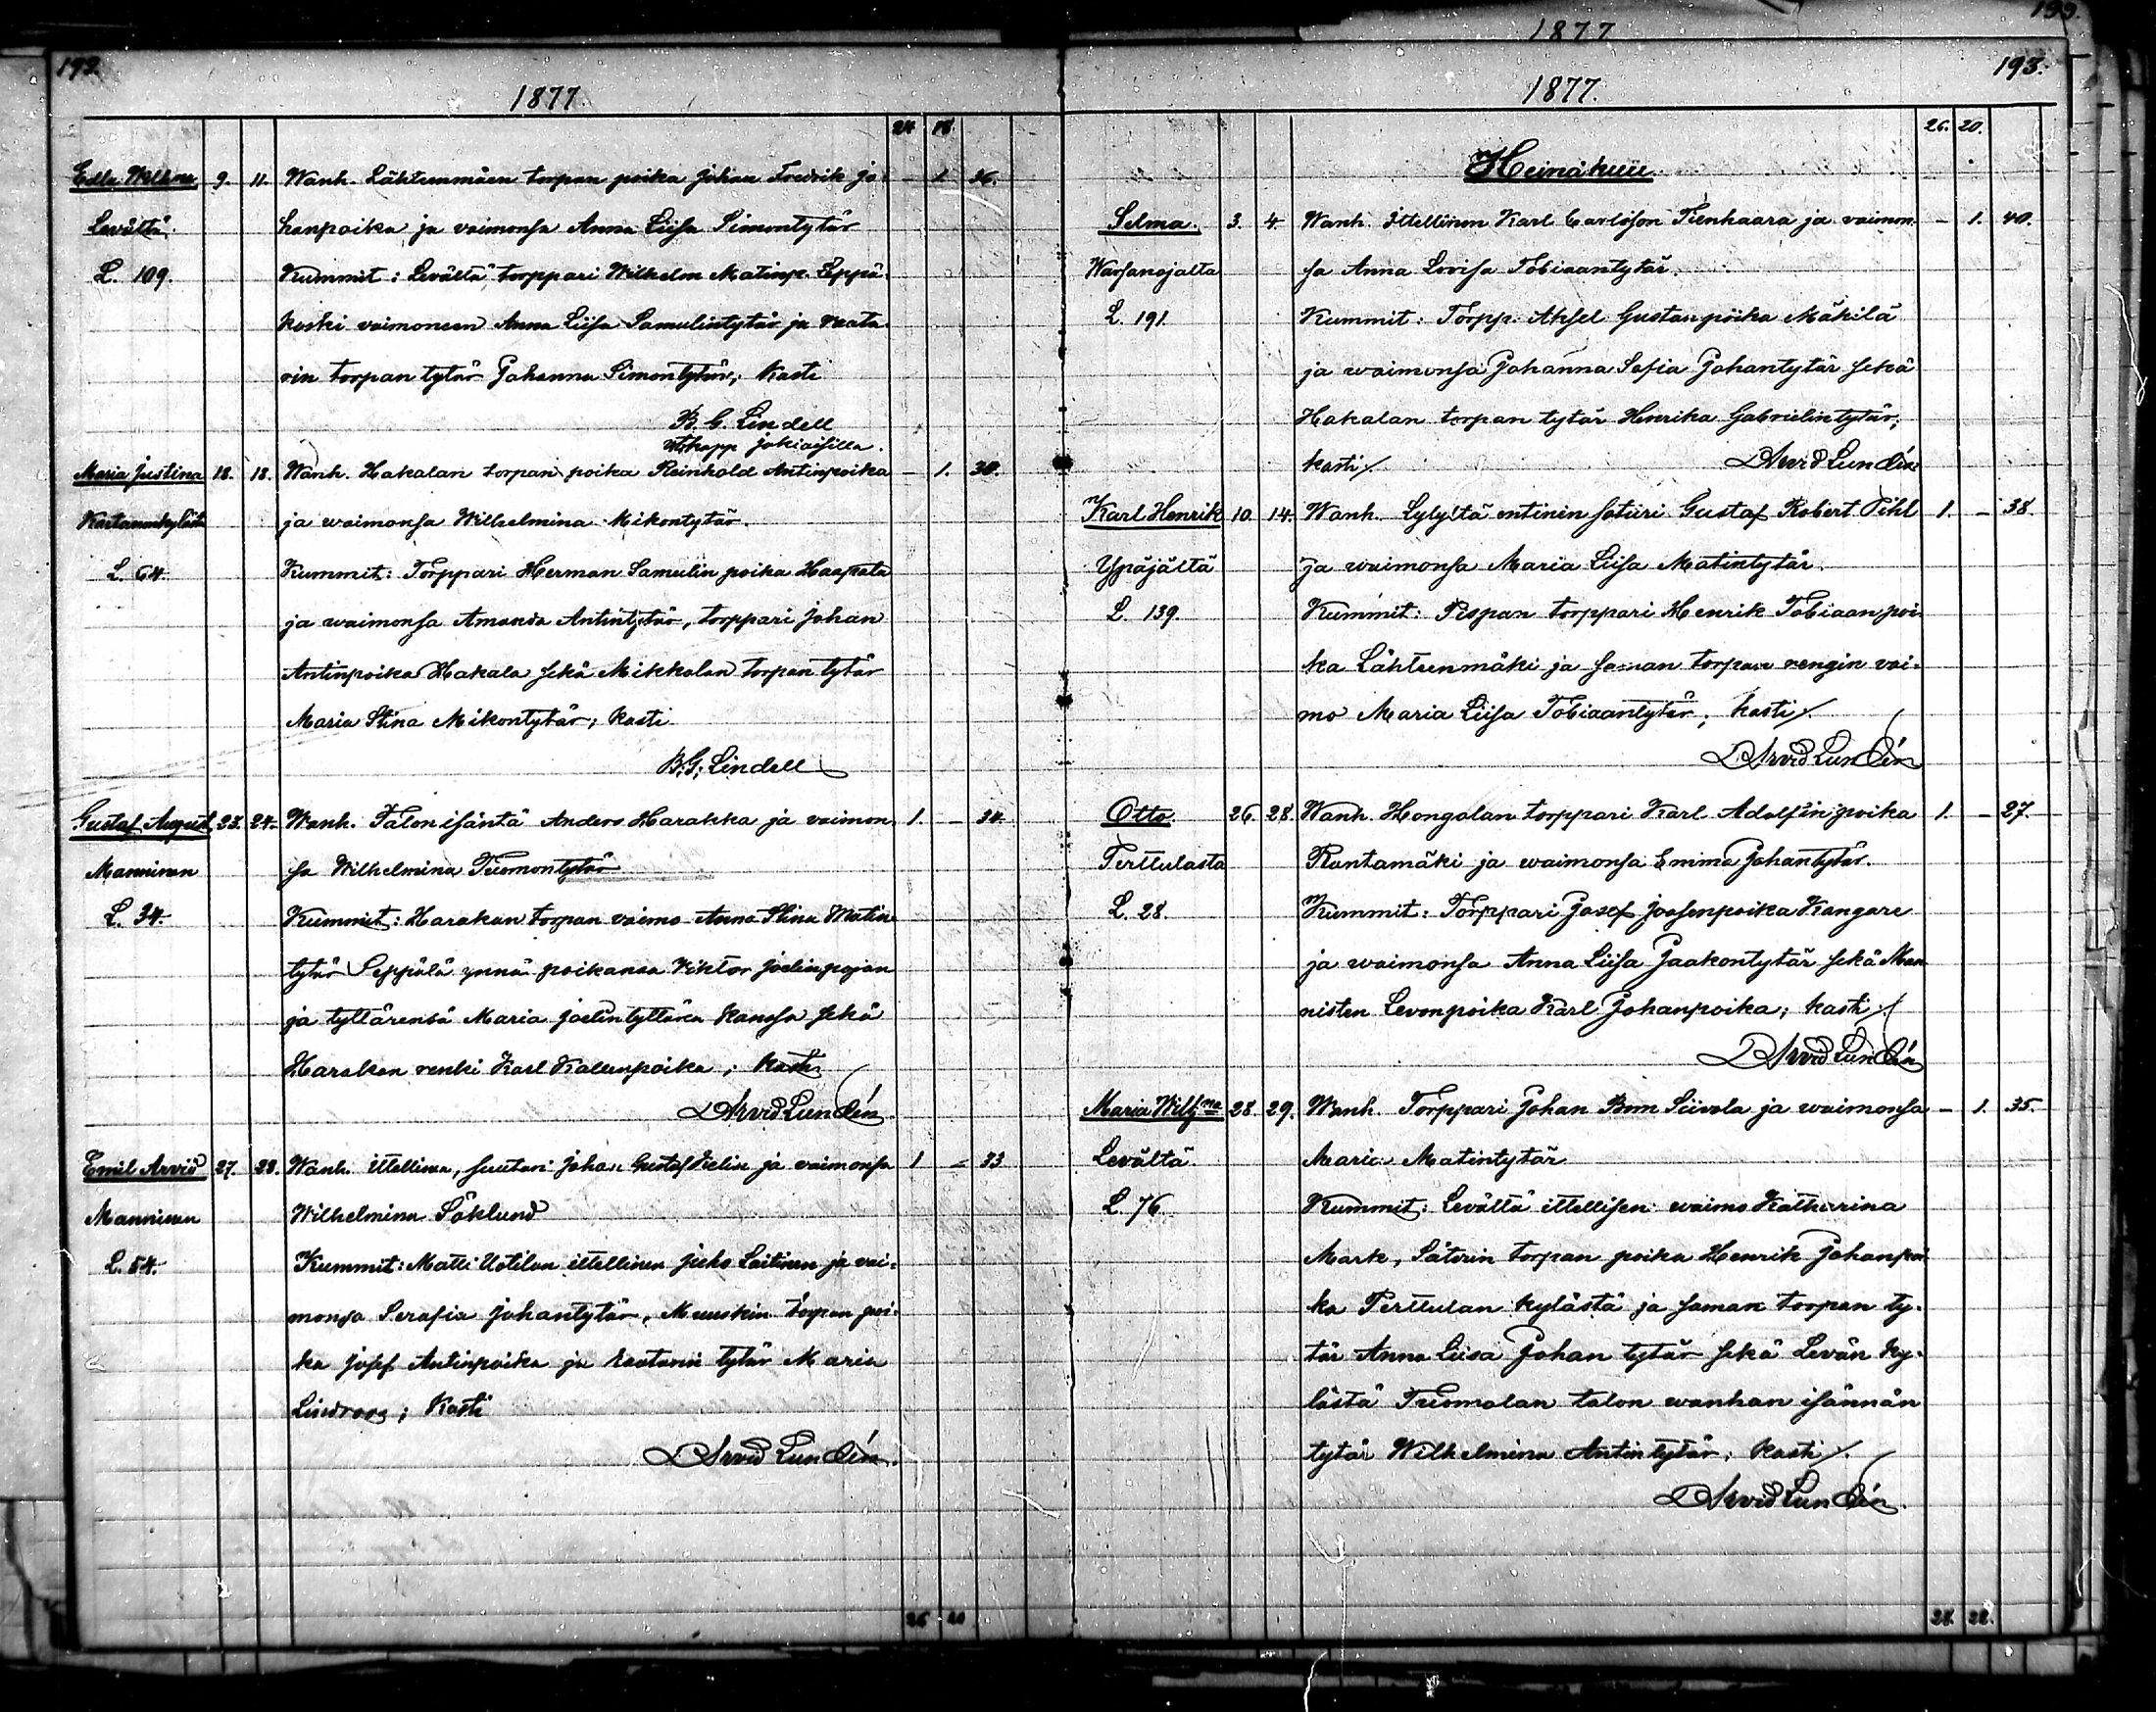 192.
1877.
24 18
Edla Welhna 9. 11. Wanh. Lähteenmäen torpan poika Johan Fredrik Jo- – 1. 36.
Levältä. hanpoika ja vaimonsa Anna Liisa Simontytär
L. 109. Kummit: Levältä torppari Wilhelm Matinp. Leppä-
koski vaimoneen Anna Liisa Samulintytär ja
rin torpan tytär Johanna Simontytär; Kasti
B. G. Lindell
jokiaisilla.
Maria Justina 18. 18. Wanh. Hakalan torpan poika Reinhold Antinpoika – 1. 30.
ja waimonsa Wilhelmina Mikontytär.
L. 64. Kummit: Torppari Herman Samulin poika Haapala
ja waimonsa Amanda Antintytär, torppari Johan
Antinpoika Hakala sekä Mikkolan torpan tytär
Maria Stina Mikontytär; Kasti
B. G. Lindell
Gustaf August 23. 24. Wanh. Talon isäntä Anders Harakka ja vaimon- 1. – 34.
Manninen sa Wilhelmina Tuomontytär
L. 34. Kummit: Harakan torpan vaimo Anna Stina Matin
tytär Seppälä ynnä poikansa Viktor Joelinpojan
ja tyttärensä Maria Joelintyttären kanssa sekä
Harakan renki Karl Kallenpoika; Kasti
Arvid Lundén
Emil Arvid 27. 28. Wanh. Ittellinen, suutari Johan Gustaf Vielin ja vaimonsa 1 – 33
Manninen Wilhelmina Söklund
L. 54. Kummit: Matti Uotilan ittellinen Juho Laitinen ja vai-
monsa Serafia Johantytär, Muuskin torpan poi-
ka Josef Antinpoika ja tytär Maria
Lindroos; Kasti
Arvid Lundén.
26 20
1877
193.
193.
1877.
26. 20.
Heinäkuu.
Selma. 3. 4. Wanh. Ittellinen Karl Carlsson Tienhaara ja vaimon- – 1. 40.
Warsanojalta sa Anna Lovisa Tobiaantytär.
L. 191. Kummit: Torpp. Aksel Gustanpoika Mäkilä
ja waimonsa Johanna Sofia Johantytär sekä
Hakalan torpan tytär Henrika Gabrielintytär;
kasti Arvid Lundén
Karl Henrik 10 14. Wanh. Lylyltä entinen sotiiri Gustaf Robert Pihl 1. – 38.
Ypäjältä ja waimonsa Maria Liisa Matintytär.
L. 139. Kummit: Pispan torppari Henrik Tobiaanpoi-
ka Lähteenmäki ja saman torpan rengin vai-
mo Maria Liisa Tobiaantytär; kasti
Arvid Lundén
Otto. 26. 28. Wanh. Hongolan torppari Karl Adolfin poika 1. – 27.
Terttulasta Rantamäki ja waimonsa Emma Johantytär.
L. 28. Kummit: Torppari Josef Joosenpoika Kangare
ja waimonsa Anna Liisa Jaakontytär sekä Man
nisten Levonpoika Karl Johanpoika; kasti
Arvid Lundén
Maria Wilhna 28 29. Wanh. Torppari Johan Bom Siivola ja waimonsa – 1. 35.
Levältä. Maria Matintytär
L. 76. Kummit: Levältä ittellisen waimo Katharina
Mark, Sätvin torpan poika Henrik Johanpoi
ka Perttulan kylästä ja saman torpan ty-
tär Anna Liisa Johan tytär sekä Levän ky-
lästä Tuomolan talon wanhan isännän
tytär Wilhelmina Antintytär; kasti
Arvid Lundén
28. 22.